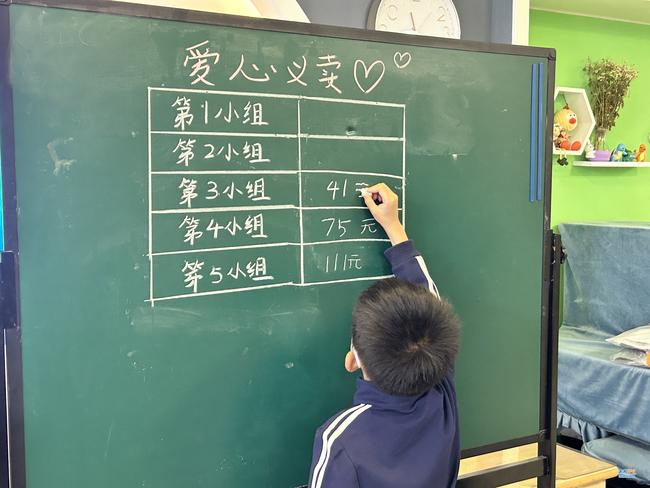 爱心义卖
第1小组
第2小组
第3小组 41元
第4小组 75元
第5小组 111元